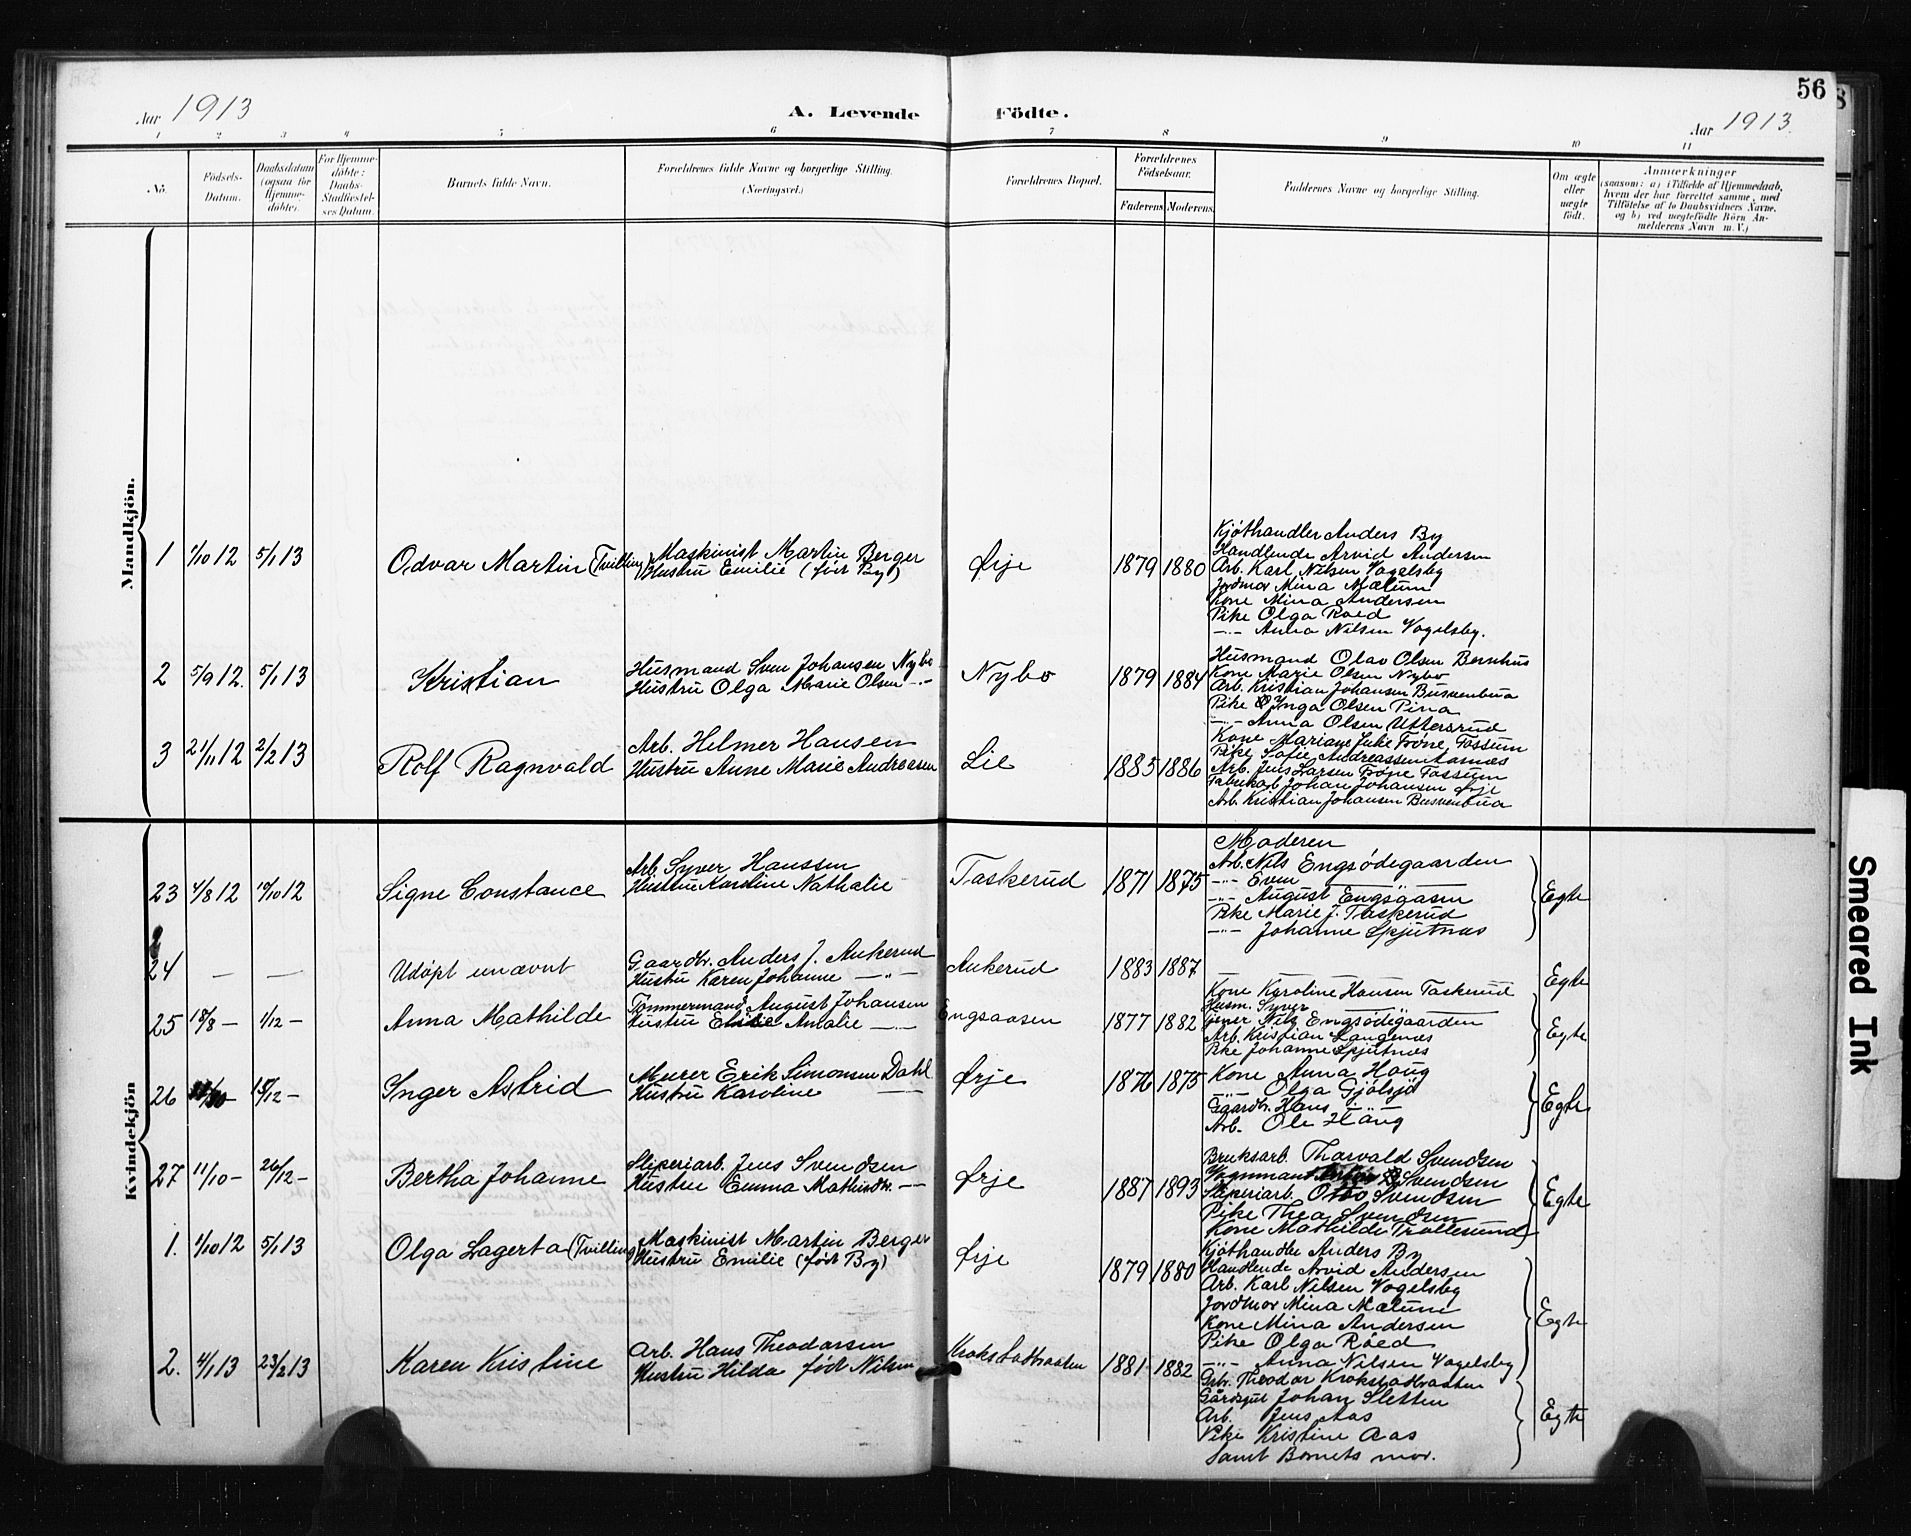 56
Aar 1913
A. Levende
Födte.
Aar 1913.
1 2 3 4 5 6 7 8 9 10 11
No.
Födsels-
Datum.
Daabsdatum
(ogsaa for
Hjemme-
döbte).
For Hjemme-
döbte:
Daabs-
Stadfæstel-
ses Datum.
Barnets fulde Navn.
Forældrenes fulde Navne og borgerlige Stilling.
(Næringsvei.)
Forældrenes Bopæl.
Forældrenes
Födselsaar.
Faderens Moderens
Faddernes Navne og borgerlige Stilling.
Om ægte
eller
uægte
födt.
Anmærkninger
(saasom: a) i Tilfælde af Hjemmedaab,
hvem der har forrettet samme, med
Tilföielse af to Daabsvidners Navne,
og b) ved uægtefödte Börn An-
melderens Navn m. V.)
Mandkjön.
1 1/10 12 5/1 13 Odvar Martin (Tvilling)
Maskinist Martin Berger
Hustru Emilie (født By)
Ørje 1879 1880
Kjøthandler Anders By
Handlende Arvid Andersen
Arb. Karl Nilsen Vogelsby
Jordmor Mina Mælum
Kone Mina Andersen
Pike Olga Roed
—"— Anna Nilsen Vogelsby.
2 5/9 12. 5/1 13 Kristian
Husmand Sven Johansen Nybo
Hustru Olga Marie Olsen —"—
Nybo 1879 1884
Husmand Olav Olsen Bernhus
Kone Marie Olsen Nybo
Arb. Kristian Johansen Busvenbua
Pike Ynga Olsen Pina
—"— Anna Olsen Uttersrud
3 21/11 12 2/2 13 Rolf Ragnvald
Arb. Helmer Hansen
Hustru Anne Marie Andreasen
Lie 1885 1886
Kone Mariane Julie Trøne, Fossum
Pike Sofie Andreassen Aarnæs
Arb. Jens Larsen Trøne Fossum
Fabrikarb Johan Johansen Ørje
Arb. Kristian Johansen Busvenbua
Kvindekjön
23 4/8 12 19/10 12 Signe Constance
Arb. Syver Hanssen
Hustru Karoline Nathalie
Taskerud 1871 1875
Moderen
Arb. Nils Engsødegaarden
—"— Even
—"— August Engsaasen
Pike Marie J. Taskerud
—"— Johanne Spjutnæs
Egte
24 — — Udøpt unævnt
Gaardbr. Anders J. Ankerud
Hustru Karen Johanne —"—
Ankerud 1883 1887
Egte
25 18/8 — 1/12 — Anna Mathilde
Tømmermand August Johansen
Hustru Elise Amalie —"—
Engsaasen 1877 1882
Kone Karoline Hansen Taskerud
Husm. Syver
Gener Nils Engsødegaarden
Arb. Kristian Langenæs
Pike Johanne Spjutnæs
Egte
26 /12 — Inger Astrid
Murer Erik Simonsen Dahl
Hustru Karoline —
Ørje 1876 1875
Kone Anna Haug
—"— Olga Gjølsjø
Gaardbr. Hans
Arb. Ole Haug
Egte
27 11/10 — 26/12 — Bertha Johanne
Sliperiarb. Jens Svendsen
Hustru Emma Mathisdtr. —"—
Ørje 1887 1893
Bruksarb. Thorvald Svendsen
Vognmand Svendsen
Sliperiarb. Otto Svendsen
Pike Thea Svendsen
Kone Mathilde Trollesund
Egte
1. 1/10 12 5/1 13 Olga Lagerta (Tvilling)
Maskinist Martin Berger
Hustru Emilie (født By)
Ørje 1879 1880
Kjøthandler Anders By
Handlende Arvid Andersen
Arb. Karl Nilsen Vogelsby
Jordmor Mina Mælum
Kone Mina Andersen
Pike Olga Røed
—"— Anna Nilsen Vogelsby
Egte
2. 4/1 13 23/2 13 Karen Kristine
Arb. Hans Theodorsen
Hustru Hilda født Nilsen
Krokstadbraaten 1881 1882
Arb. Theodor Krokstadbraaten
Gårdsgut Johan Sletten
Arb. Jens Aas
Pike Kristine Aas
Samt Barnets mor.
Egte
Smeared Ink